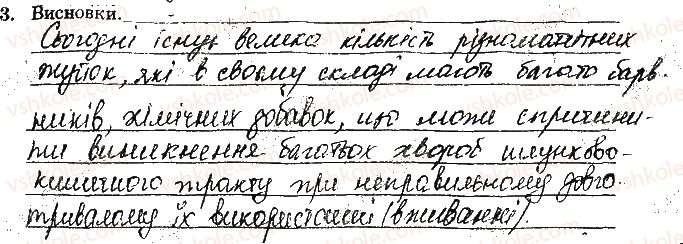 3. Висновки.
Сьогодні існує велика кількість різноманітних
жуйок, які в своєму складі мають багато барв-
ників, хімічних добавок, що може спричини-
ти виникнення багатьох хвороб шлунково-
кишечного тракту при неправильному довго-
тривалому їх використанні (вживанні).